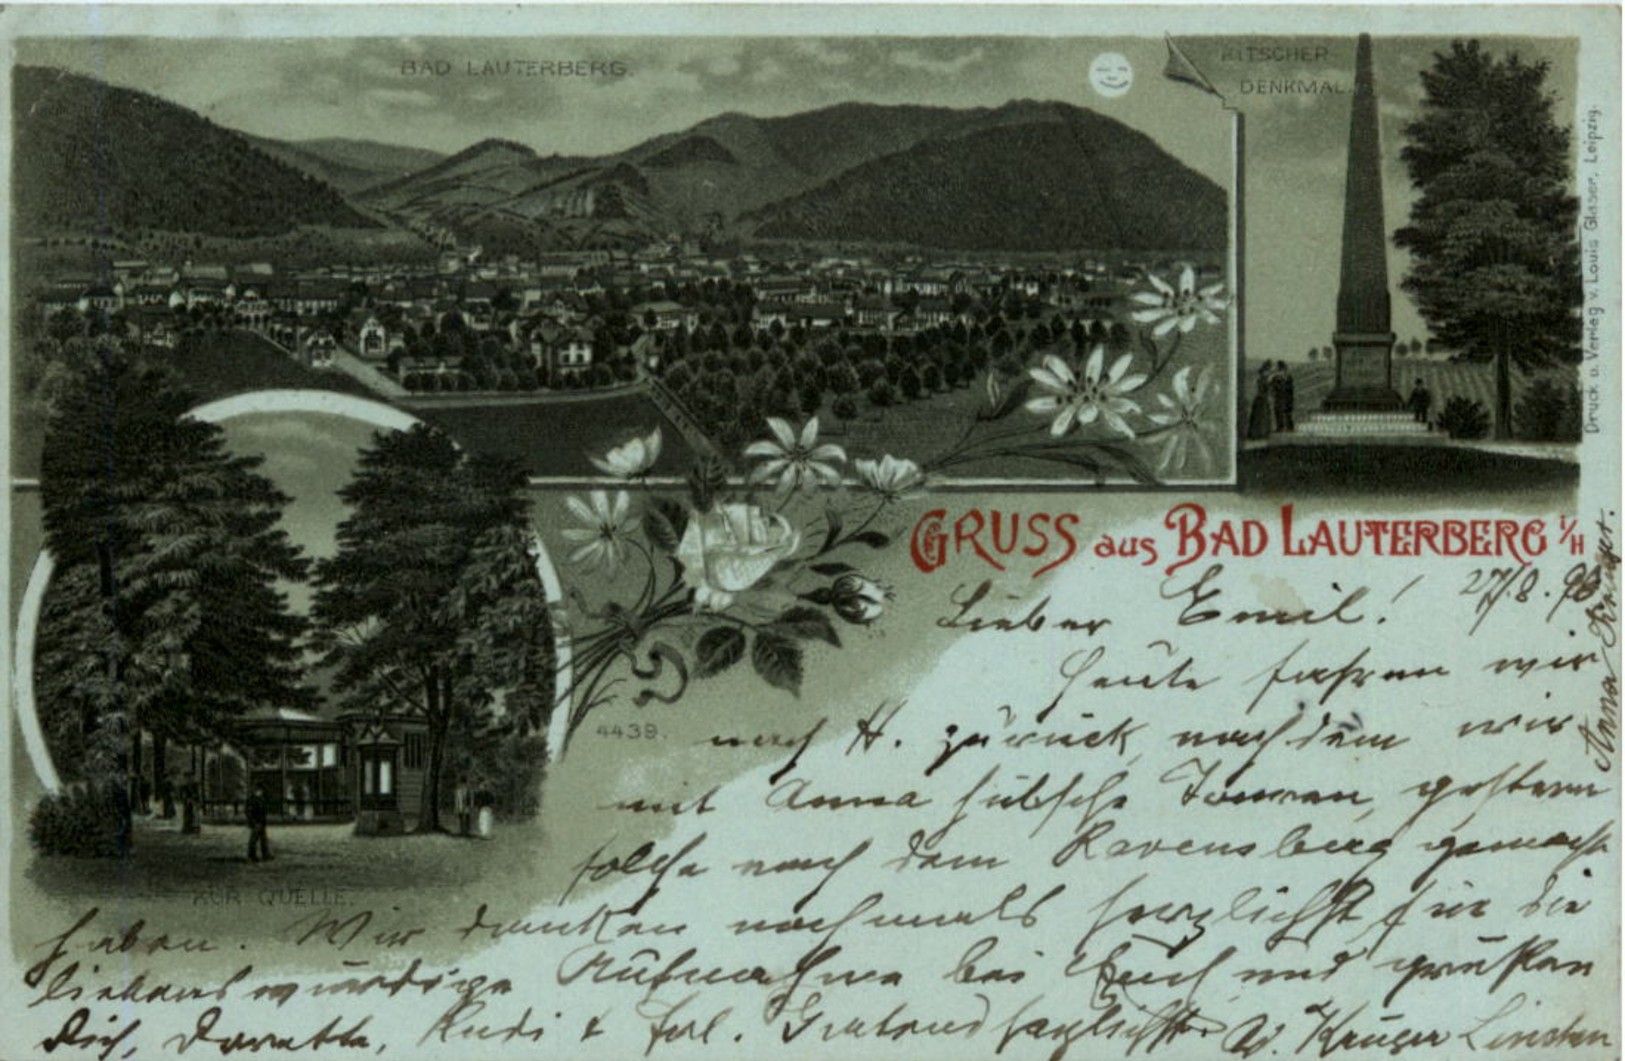 BAD LAUTERBERG.
RITSCHER
DENKMAL.
Druck u. Verlag v. Louis Glaser, Leipzig.
GRUSS aus BAD LAUTERBERG i/H
27/8. 98
Lieber Emil!
Heute fahren wir
nach H. zurück, nachdem wir
mit Anna hübsche Touren, gestern
solche nach dem Ravensberg gemacht
haben. Wir danken nochmals herzlichst für die
liebenswürdige Aufnahme bei Euch und grüßen
Dich, Dorette, Rudi & Frl. herzlichst W. Krüger
Anna Krüger.
4439.
KUR QUELLE.